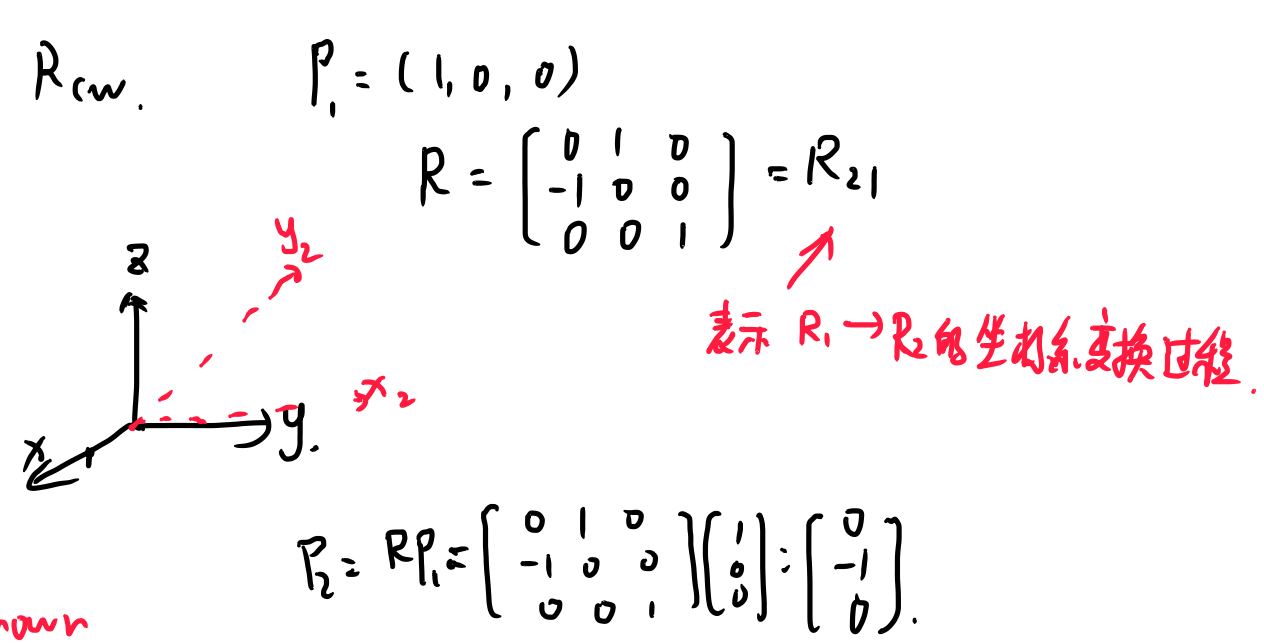 Rcw. P₁ = (1, 0, 0)
R = [ 0 1 0
-1 0 0
0 0 1 ] = R₂₁
y₂
z
表示 R₁→R₂的坐标系变换过程.
x₂
x y.
P₂ = RP₁ = [ 0 1 0
-1 0 0
0 0 1 ] [ 1
0
0 ] = [ 0
-1
0 ].
nown